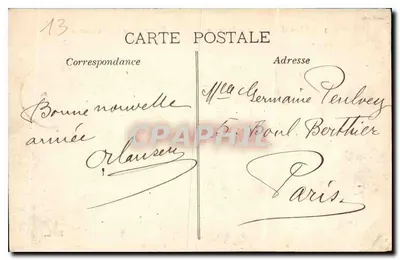 13
CARTE POSTALE
Correspondance
Adresse
Bonne nouvelle
année
Mlle Germaine
Boul. Berthier
Paris
CPAPHIL